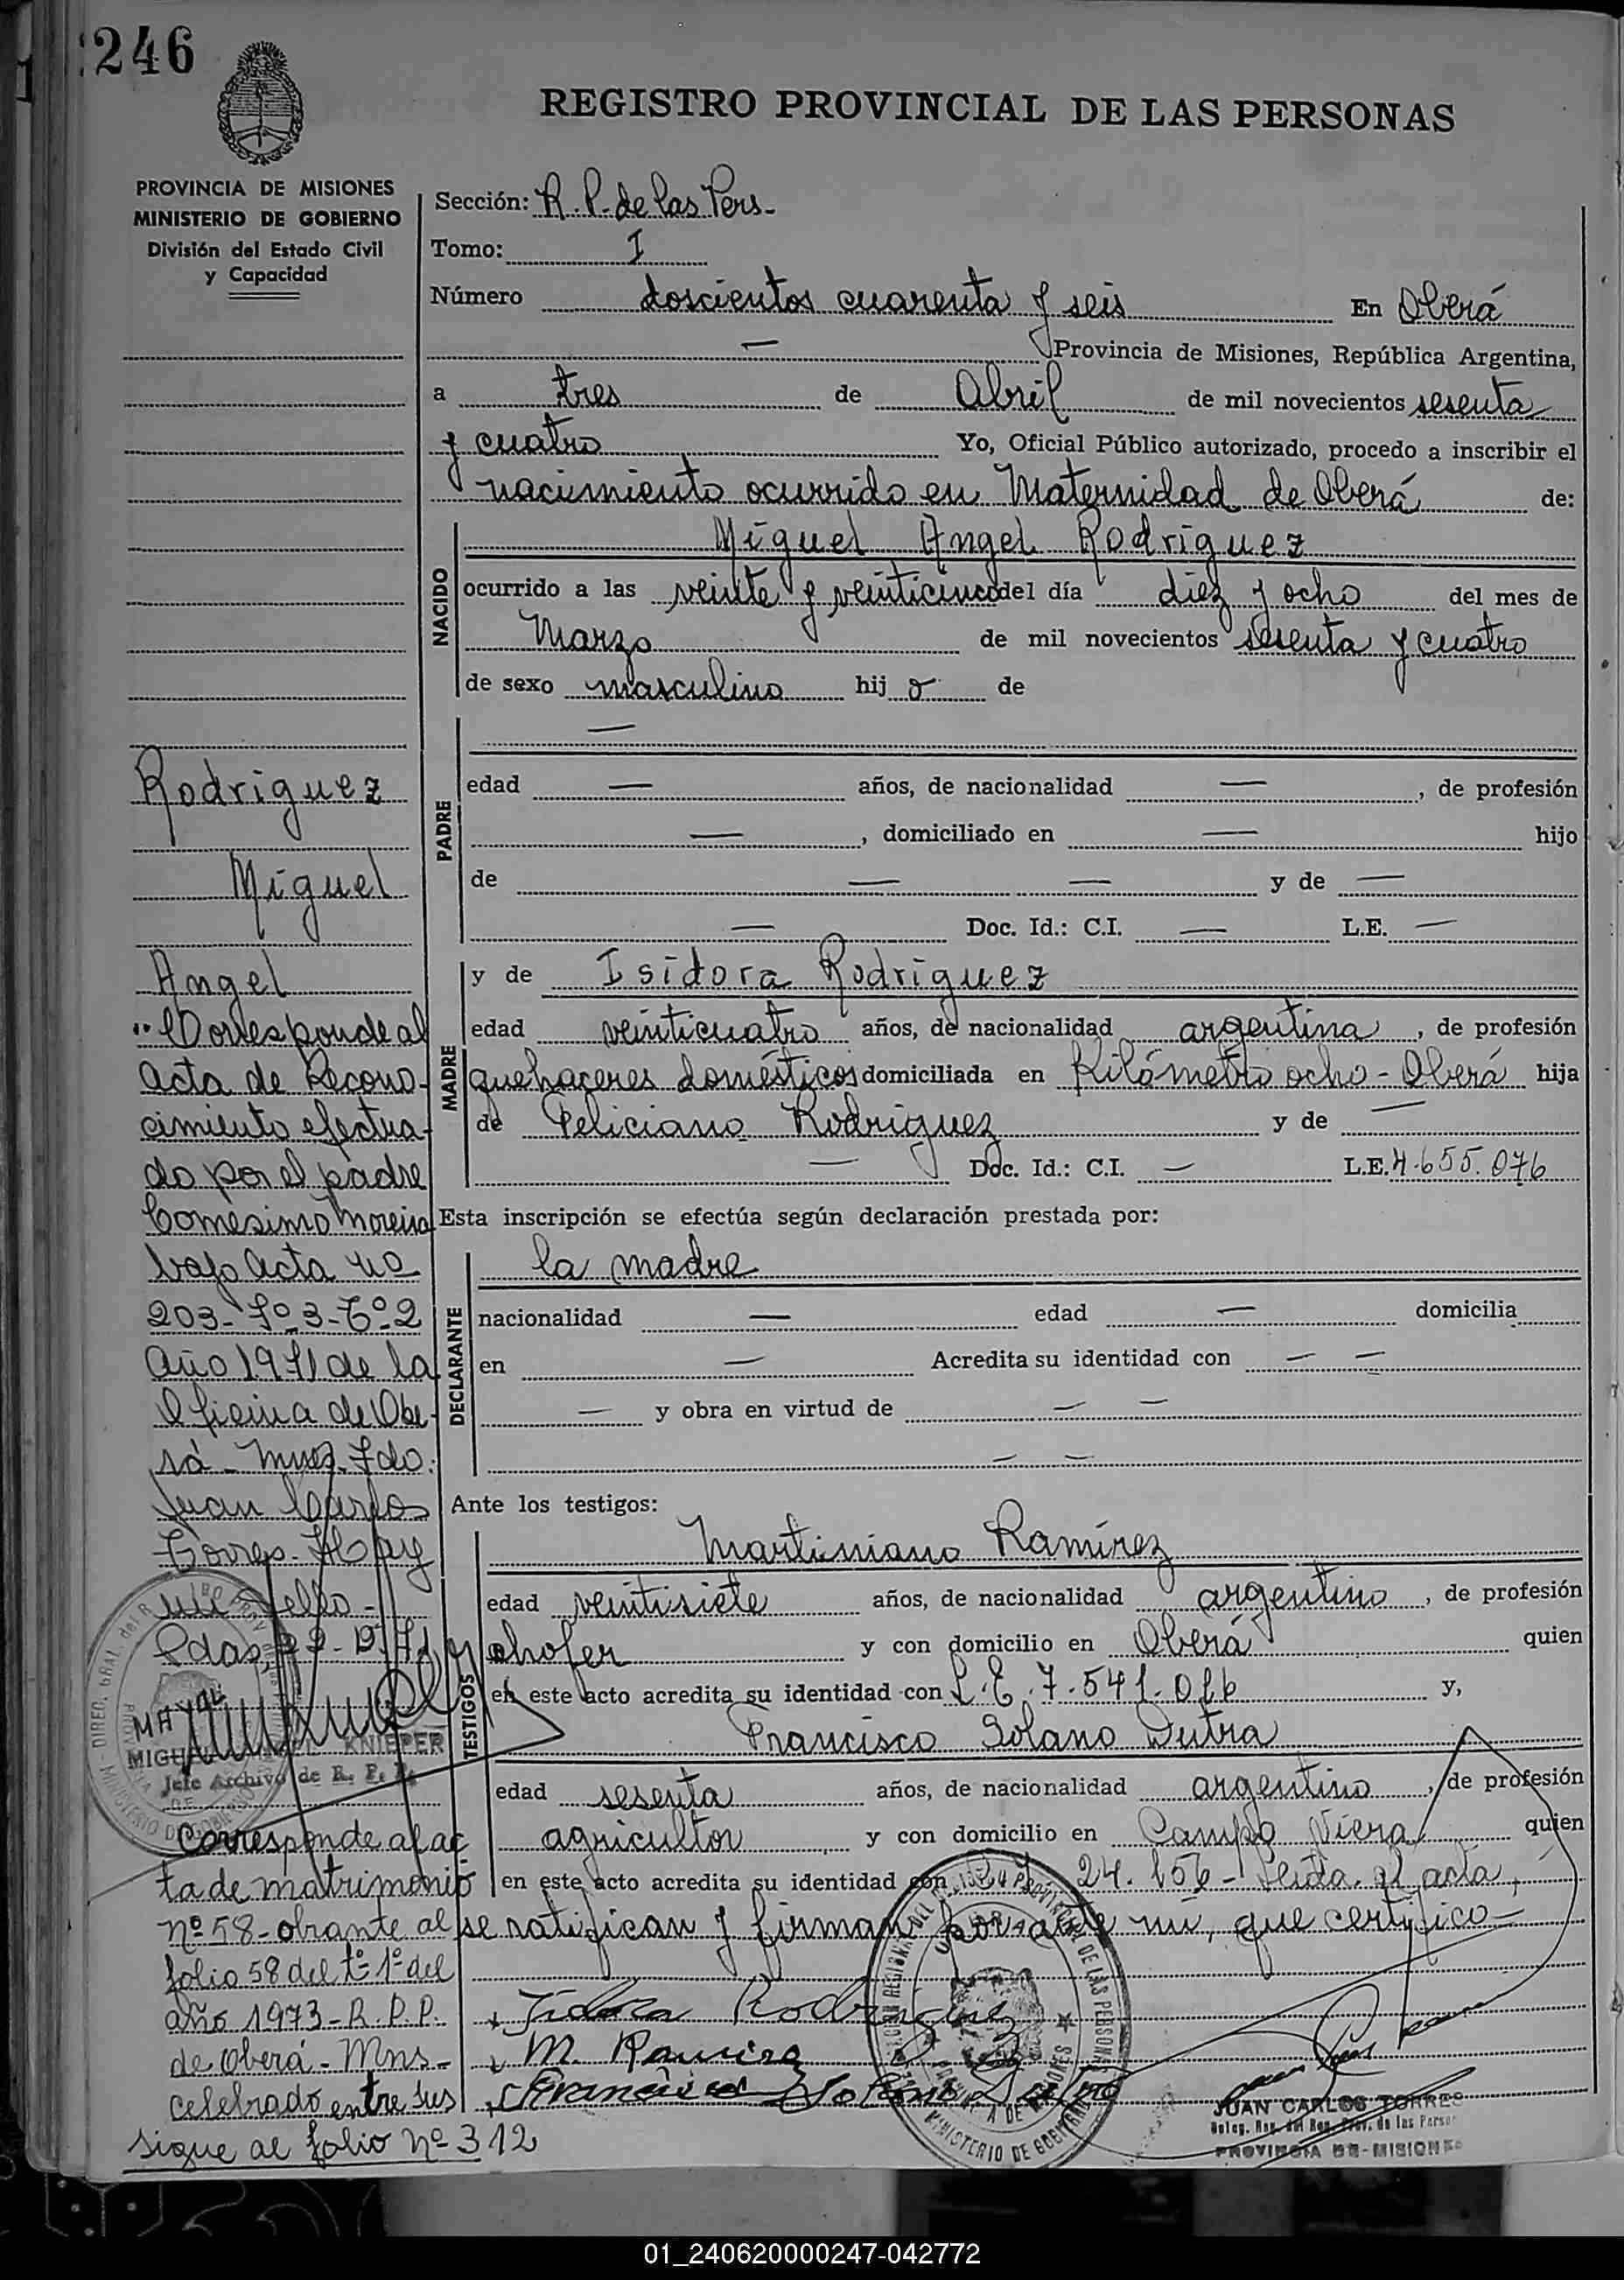 246
REGISTRO PROVINCIAL DE LAS PERSONAS
PROVINCIA DE MISIONES
MINISTERIO DE GOBIERNO
División del Estado Civil
y Capacidad
Sección: R. P. de las Pers.
Tomo: I
Número doscientos cuarenta y seis En Oberá
— Provincia de Misiones, República Argentina,
a tres de Abril de mil novecientos sesenta
y cuatro Yo, Oficial Público autorizado, procedo a inscribir el
nacimiento ocurrido en Maternidad de Oberá de:
NACIDO
Miguel Angel Rodriguez
ocurrido a las veinte y veinticinco del día diez y ocho del mes de
Marzo de mil novecientos sesenta y cuatro
de sexo masculino hij o de
PADRE
—
edad — años, de nacionalidad —, de profesión
—, domiciliado en — hijo
de — — y de —
— Doc. Id.: C.I. — L.E. —
MADRE
y de Isidora Rodriguez
edad veinticuatro años, de nacionalidad argentina, de profesión
quehaceres domésticos domiciliada en Kilómetro ocho - Oberá hija
de Feliciano Rodriguez y de —
— Doc. Id.: C.I. — L.E. 4.655.076
Esta inscripción se efectúa según declaración prestada por:
DECLARANTE
la madre
nacionalidad — edad — domicilia
en — Acredita su identidad con — —
— y obra en virtud de — —
— —
Ante los testigos:
TESTIGOS
Martiniano Ramírez
edad veintisiete años, de nacionalidad argentino, de profesión
chofer y con domicilio en Oberá quien
en este acto acredita su identidad con L.E. 7.541.016 y,
Francisco Solano Dutra
edad sesenta años, de nacionalidad argentino, de profesión
agricultor y con domicilio en Campo Viera quien
en este acto acredita su identidad con 24.156 - Leida el acta,
se ratifican y firman por ante mí, que certifico -
Isidora Rodriguez
M. Ramirez
Francisco Solano Dutra
JUAN CARLOS TORRES
Deleg. Reg. del Reg. Prov. de las Person
PROVINCIA DE MISIONES
Rodriguez
Miguel
Angel
Corresponde al
acta de Recono-
cimiento efectua-
do por el padre
Comesimo Moreira
bajo acta nº
203- Fº 3- Tº 2
Año 1971 de la
Oficina de Obe-
rá - Mnes. Fdo.
Juan Carlos
Torres. Hay
un sello -
Pdas,
MIGUEL KNIEPER
Jefe Archivo de R. P. P.
Corresponde al ac-
ta de matrimonio
nº 58 - obrante al
folio 58 del tº 1º del
año 1973 - R. P. P.
de Oberá - Mns -
celebrado entre sus
sigue al folio nº 312
01_240620000247-042772